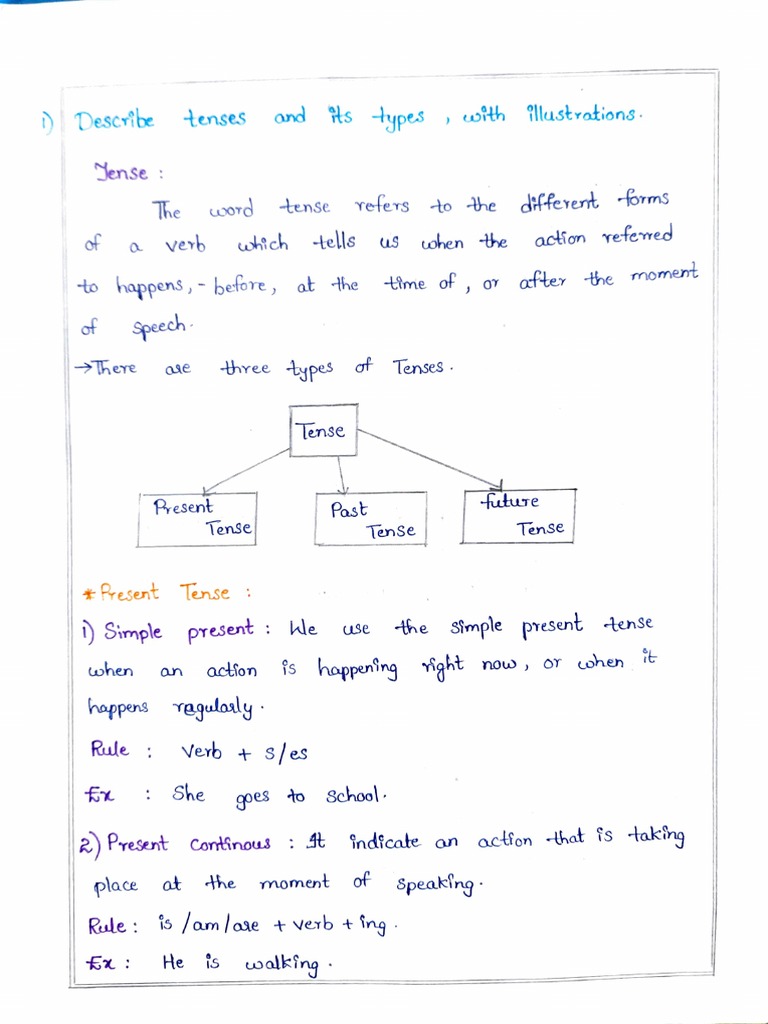 1) Describe tenses and its types, with illustrations.
Tense :
The word tense refers to the different forms
of a verb which tells us when the action referred
to happens, - before, at the time of, or after the moment
of speech.
→There are three types of Tenses.
Tense
Present
Tense
Past
Tense
future
Tense
* Present Tense :
1) Simple present : We use the simple present tense
when an action is happening right now, or when it
happens regularly.
Rule : Verb + s/es
Ex : She goes to school.
2) Present continous : It indicate an action that is taking
place at the moment of speaking.
Rule : is /am/are + verb + ing.
Ex : He is walking.